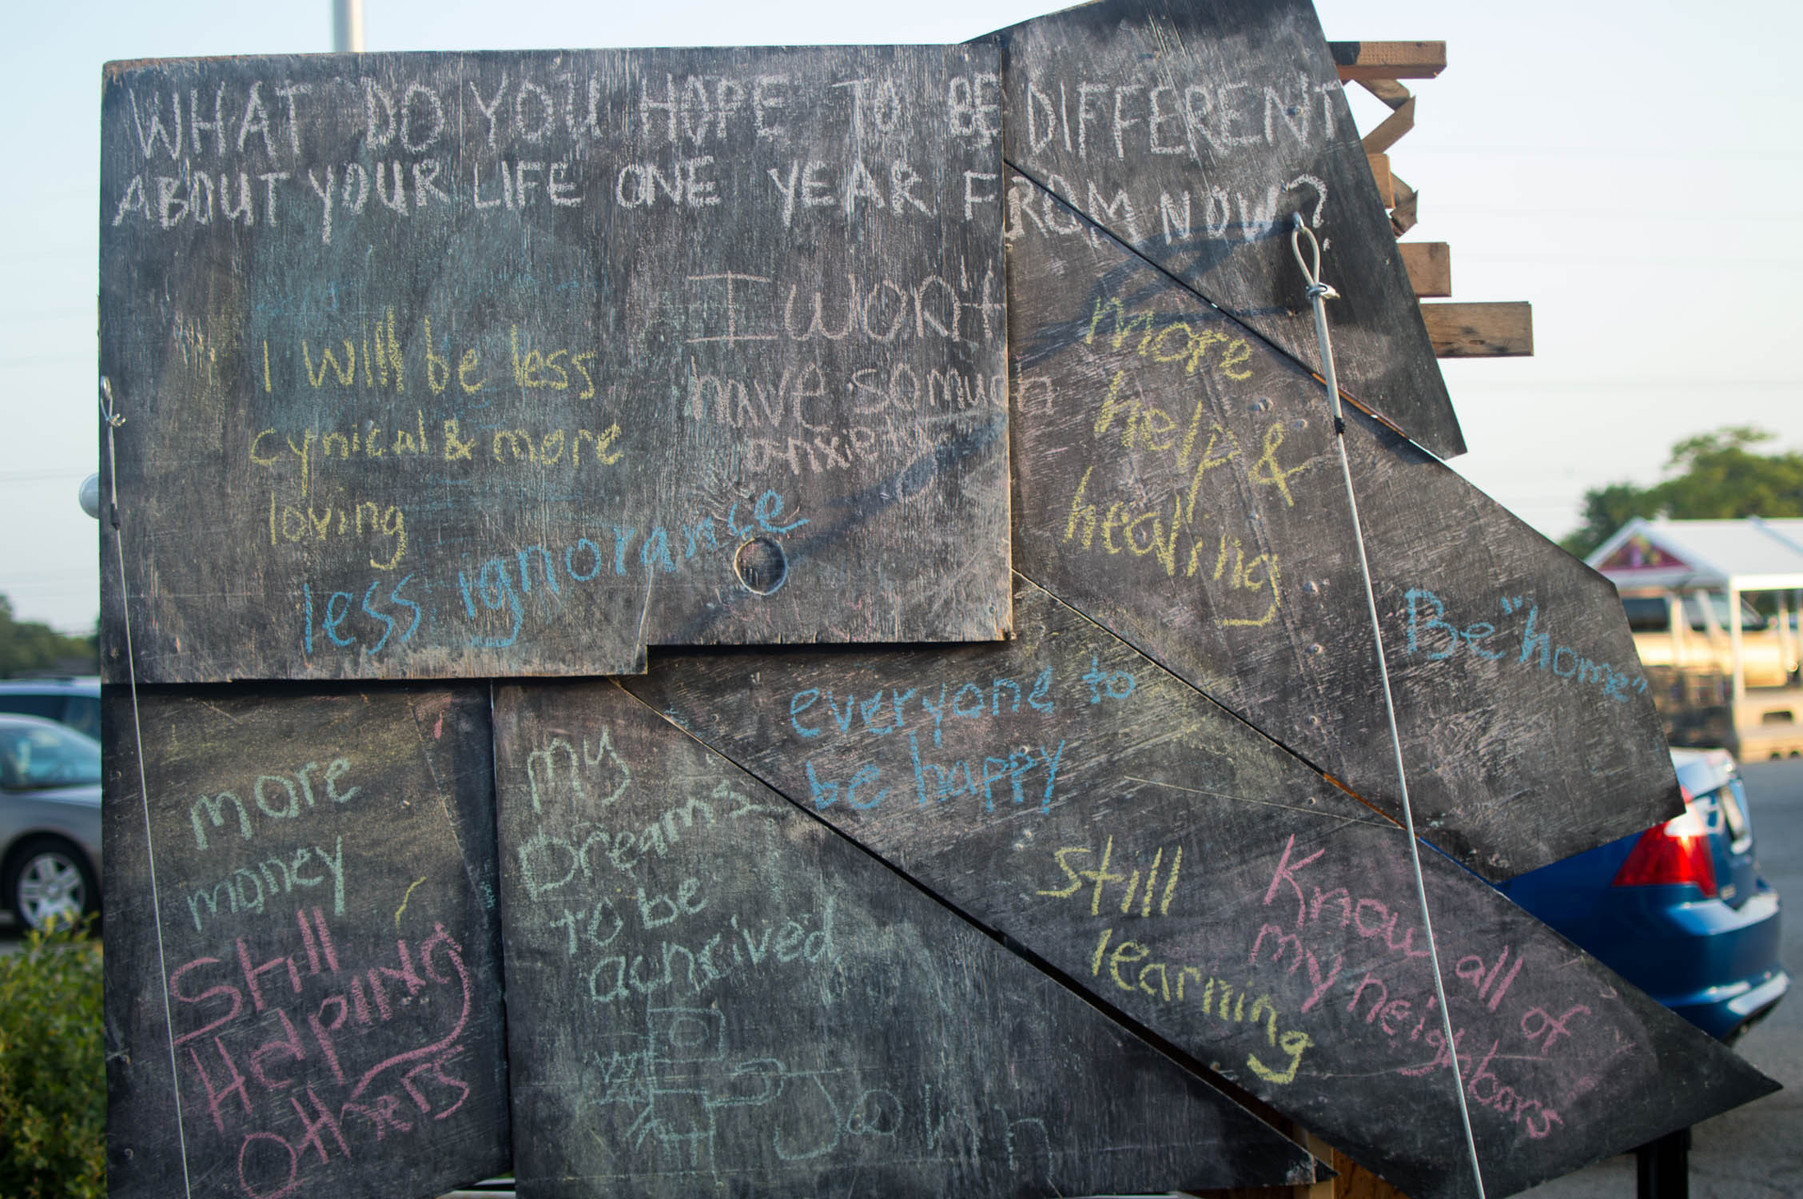 WHAT DO YOU HOPE TO BE DIFFERENT
ABOUT YOUR LIFE ONE YEAR FROM NOW?
I will be less
cynical & more
loving
I won't
have so much
anxiety
less ignorance
more
help &
healing
Be "home"
everyone to
be happy
more
money
Still
Helping
Others
my
Dreams
to be
achrived
Still
learning
Know all of
my neighbors